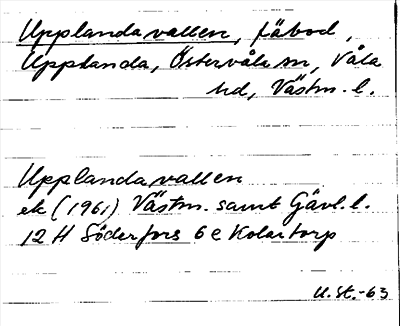 Upplandavallen, fäbod,
Upplanda, Östervåla sn, Våla
hd, Västm. l.
Upplandavallen
ek (1961) Västm. samt Gävl. l.
12 H Söderfors 6 e Kolartorp
U. St. -63